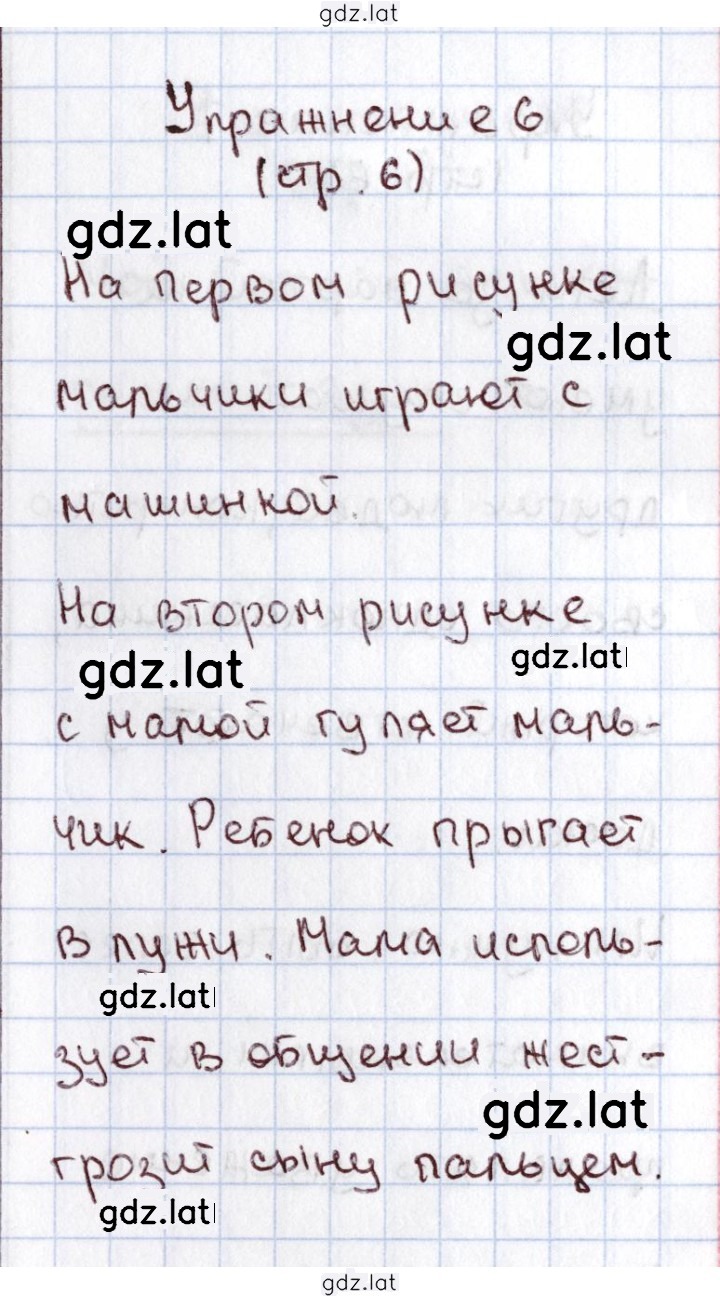 gdz.lat
Упражнение 6
(стр. 6)
gdz.lat
На первом рисунке
gdz.lat
мальчики играют с
машинкой.
На втором рисунке
gdz.lat gdz.lat
с мамой гуляет маль-
чик. Ребенок прыгает
в лужи. Мама исполь-
gdz.lat
зует в общении жест -
gdz.lat
грозит сыну пальцем.
gdz.lat
gdz.lat